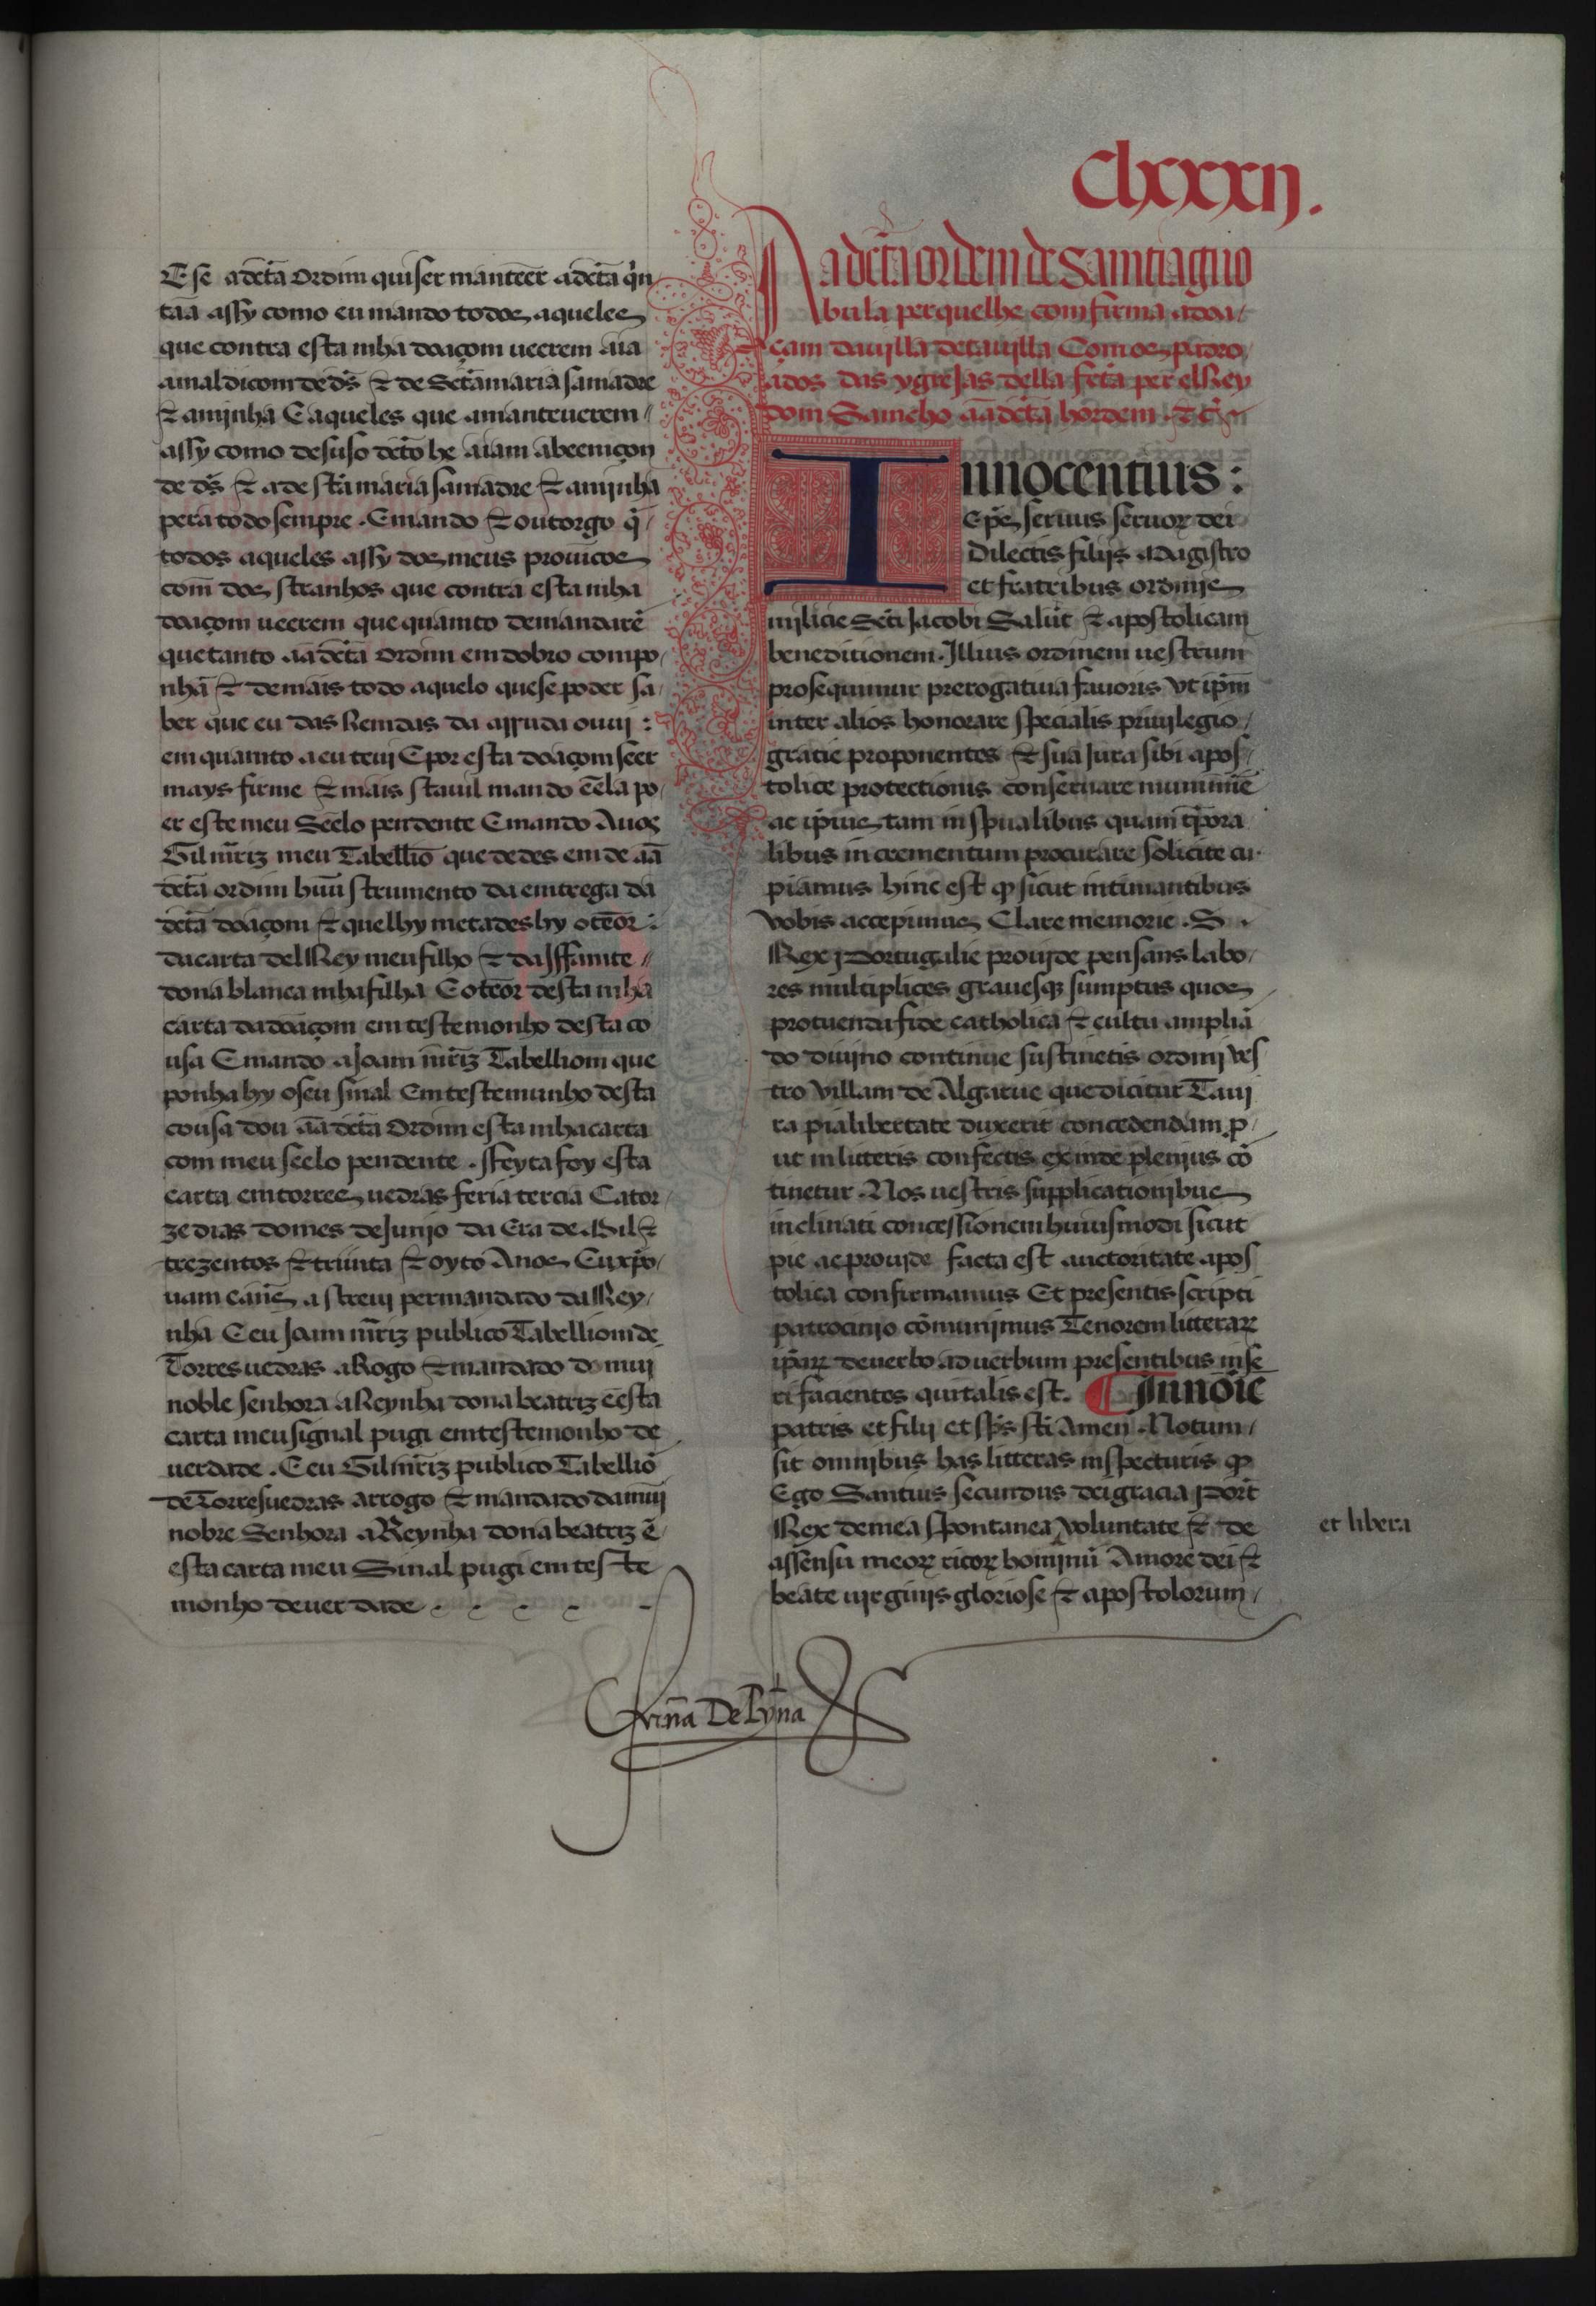 Clxxxij.
E se a dctã Ordim quiser manteer a dctã qĩn
tãa assy como eu mando todos aqueles
que contra esta mha doaçom ueerem aia
a maldicom de ds̃ ⁊ de Sctã maria sa madre
⁊ a mjnha E aqueles que a manteuerem
assy como desuso dctõ he aiam a beeniçon
de ds̃ ⁊ a de stã maria sa madre ⁊ a mjnha
pera todo sempre . E mando ⁊ outorgo q̃
todos aqueles assy dos meus prouicos
com̃ dos stranhos que contra esta mha
doaçom ueerem que quamto demandarẽ
que tanto aa dctã Ordim em dobro compo
nhã ⁊ demais todo aquelo que se poder sa
ber que eu das Rendas da arruda ouuj :
em quamto a eu teuj E por esta doaçom seer
mays firme ⁊ mais stauil mando ẽ ela po
er este meu Seelo pendente E mando A uos
Gil mr̃iz meu Tabelliõ que dedes em de aã
dctã ordim huũ strumento da emtrega da
dctã doaçom ⁊ que lhy metades hy o teor :
da carta del Rey meu filho ⁊ da Jffamte
dona blanca mha filha E o teor desta mha
carta da doaçom em testemonho desta co
usa E mando a Joam mr̃iz Tabelliom que
ponha hy o seu sinal Em testemunho desta
cousa dou aã dctã Ordim esta mha carta
com meu seelo pendente . Ffeyta foy esta
carta em torres uedras feria tercia Cator
ze dias do mes de Junjo da Era de Mil ⁊
trezentos ⁊ triinta ⁊ oyto Anos Eu xp̃o
uam eañẽs a streuj per mandado da Rey
nha E eu Joam mr̃iz publico Tabelliom de
Torres uedras a Rogo ⁊ mandado da muj
noble senhora a Reynha dona beatriz ẽ esta
carta meu signal pugi em testemonho de
uerdade . E eu Gil mr̃iz publico Tabelliõ
de Torres uedras a rrogo ⁊ mandado da muj
nobre Senhora a Reynha dona beatriz ẽ
esta carta meu Sinal pugi em teste
monho de uerdade .
A a dctã ordem de Samtiaguo
bula per que lhe comfirma a doa
çam da uilla de tauilla Com os padro
ados das ygreJas della fctã per elRey
dom Samcho aã dctã hordem . ⁊ cr̃
Innocentius :
Ep̃s seruus seruoꝝ dei
Dilectis filijs Magistro
et fratribus ordinis
milicie Scti Jacobi Salut̃ ⁊ apostolicam
beneditionem . Illius ordinem uestrum
prosequimur prerogatiua fauoris vt ip̃m
inter alios honorare specialis priuilegio
gratie proponentes ⁊ sua Jura sibi apos
tolice protectionis conseruare munimĩe
ac ip̃ius tam in sp̃ualibus quam tp̃ora
libus incrementum procurare solicite cu
piamus hinc est ꝙ sicut intimantibus
vobis accepimus Clare memorie . S .
Rex Portugalie prouide pensans labo
res multiplices grauesqꝫ sumptus quos
pro tuenda fide catholica ⁊ cultu ampliã
do diuino continue sustinetis ordinj ves
tro villam de Algarue que dicitur Taui
ra pia libertate duxerit concedendam . p
ut in litteris confectis exinde plenius cõ
tinetur . Nos uestris supplicationibus
inclinati concessionem huiusmodi sicut
pie ac prouide facta est auctoritate apos
tolica confirmamus Et presentis scripti
patrocinio cõmunimus Tenorem litterarꝝ
ip̃arꝝ de uerbo ad uerbum presentibus inse
ri facientes qui talis est . In nõie
patris et filij et sp̃s scti Amen . Notum
sit omnibus has litteras inspecturis ꝙ
Ego Santius secundus dei gracia Port̃
Rex de mea spontanea voluntate ⁊ de
et libera
assensu meoꝝ ricoꝝ hominũ Amore dei ⁊
beate uirginis gloriose ⁊ apostolorum
De Pyña